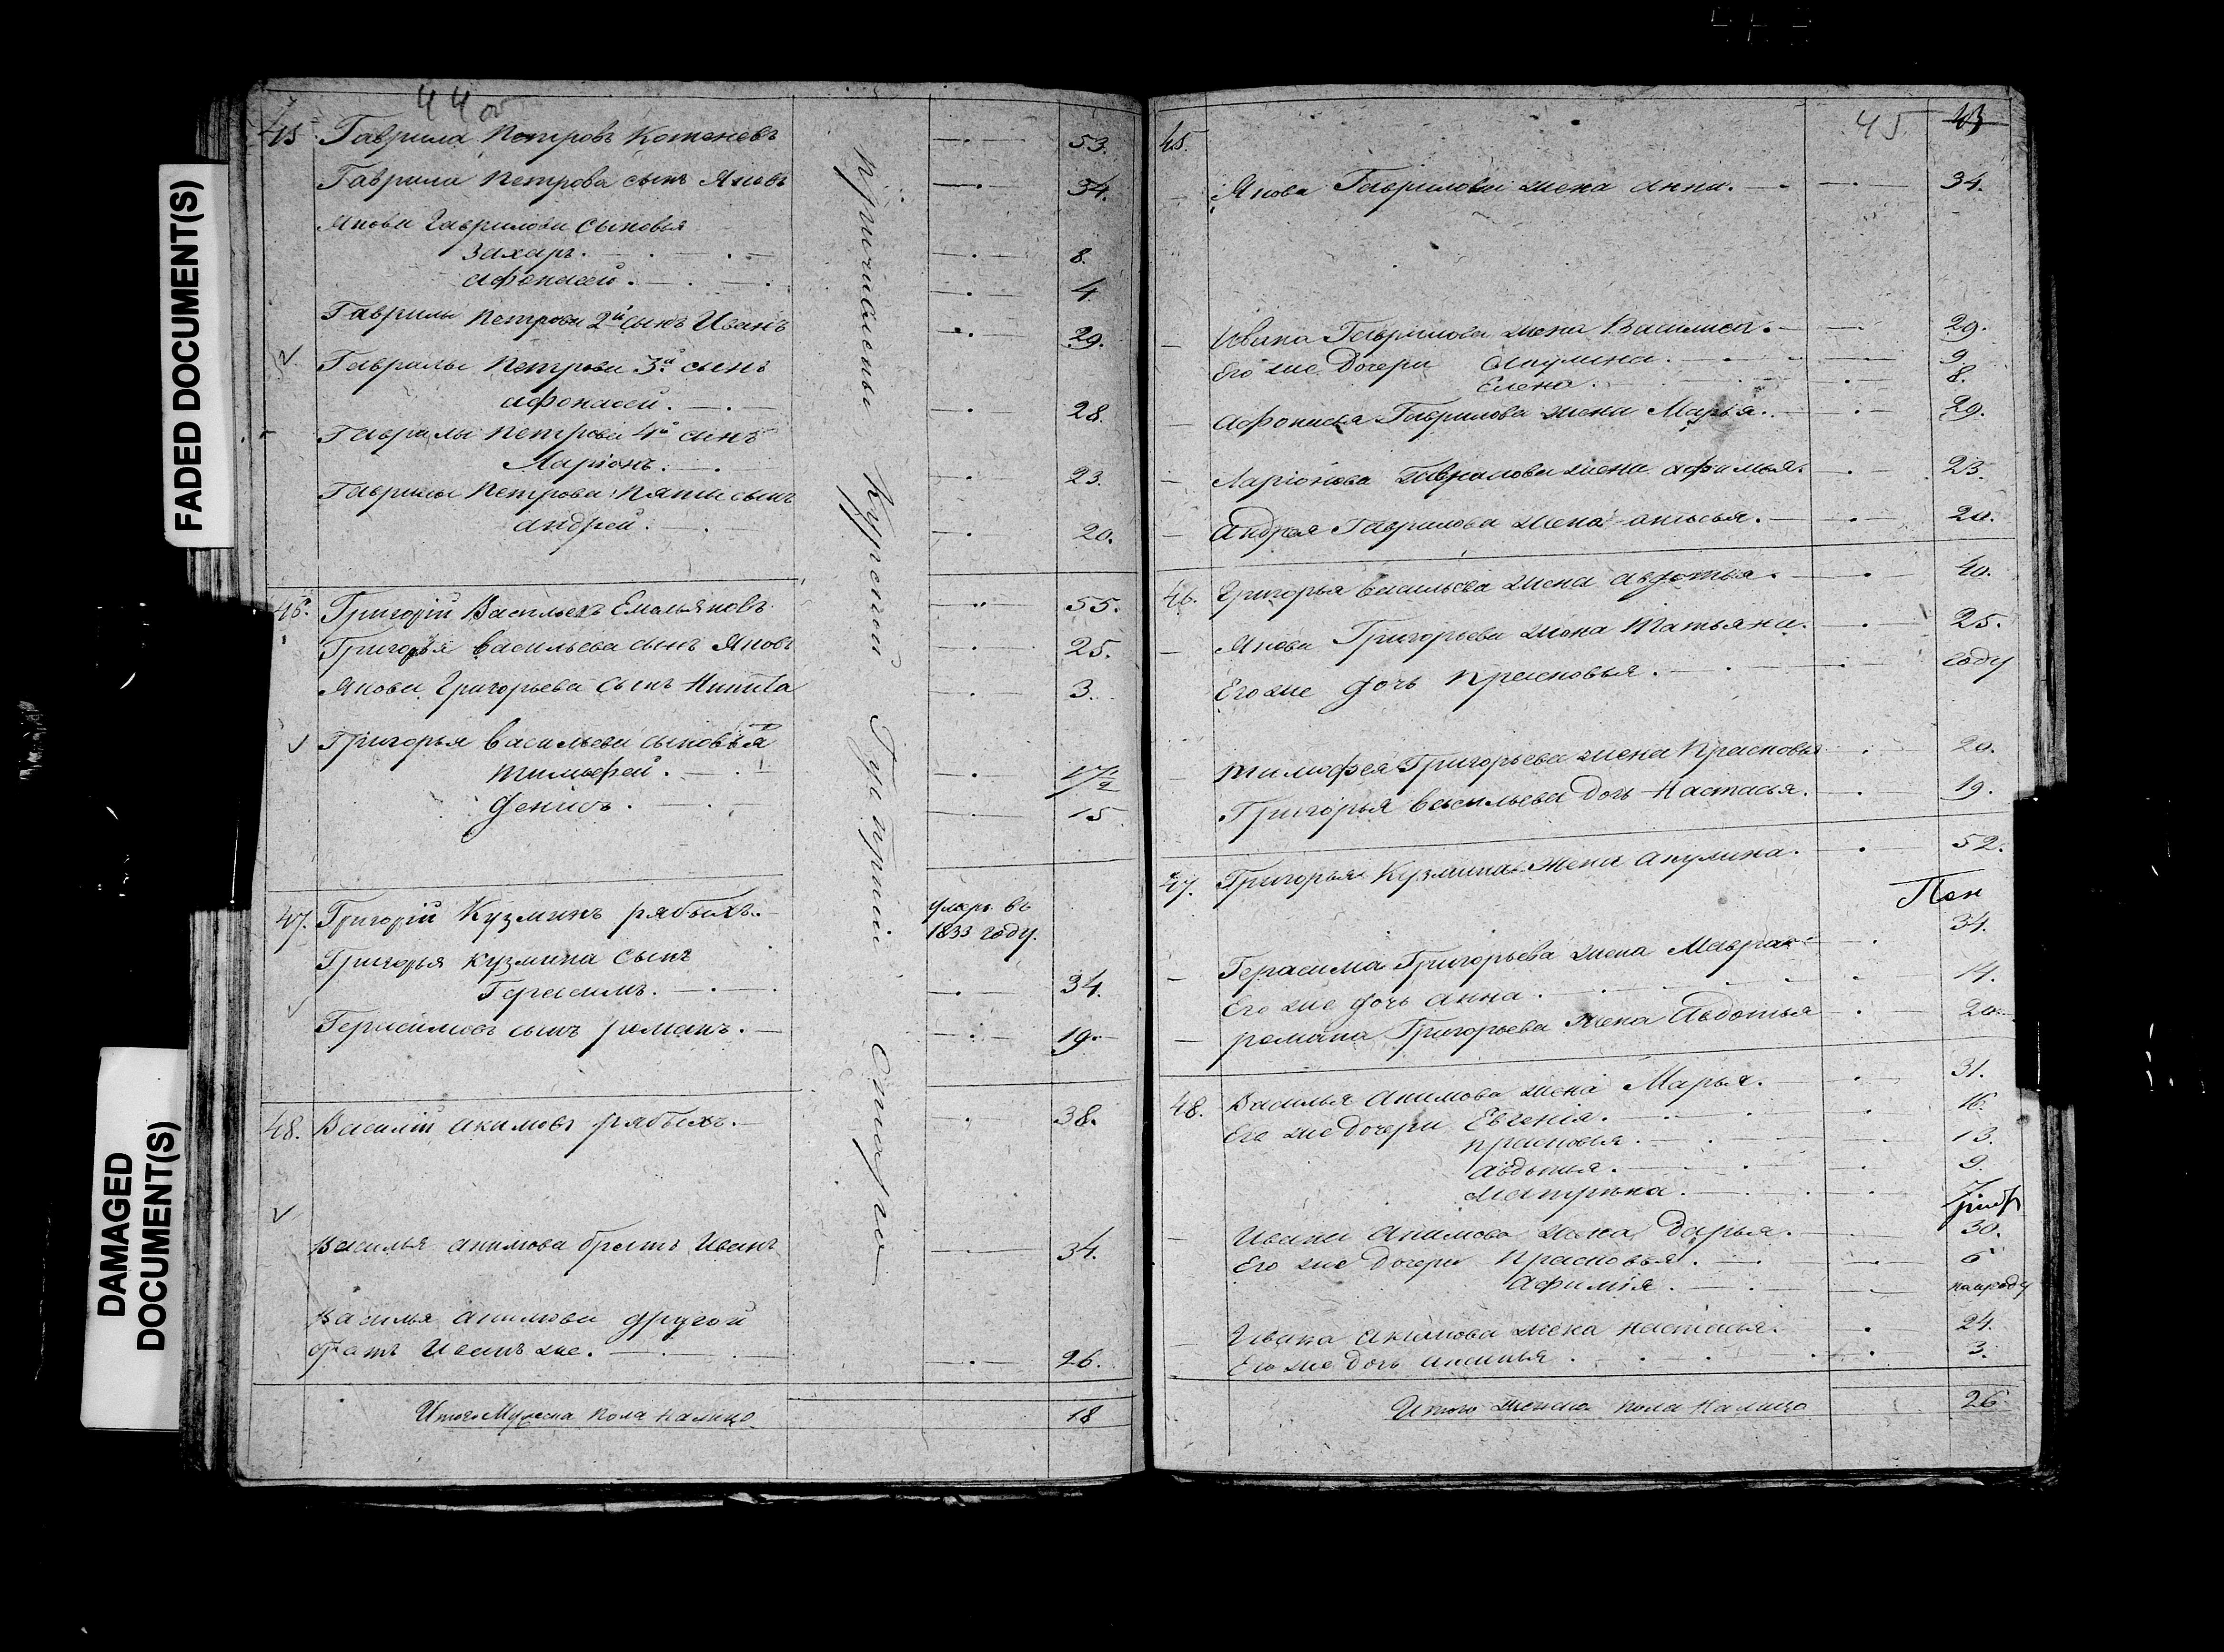 FADED DOCUMENT(S)
DAMAGED
DOCUMENT(S)
44 об
45 Гаврила Петровъ Котеневъ 53.
Гаврила Петрова сынъ Яковъ 34.
Якова Гаврилова сыновья
Захаръ. 8.
Афонасей. 4
Гаврилы Петрова 2й сынъ Иванъ 29.
Гаврилы Петрова 3й сынъ
Афонасей. 28.
Гаврилы Петрова 4й сынъ
Ларіонъ. 23.
Гаврилы Петрова пяты сынъ
Андрей. 20.
46. Григорій Васильевъ Емельяновъ 55.
Григорья Васильева сынъ Яковъ 25.
Якова Григорьева сынъ Никита 3.
Григорья Васильева сыновья
Тимофей. 17 1/2
Денисъ. 15
47. Григорій Кузминъ рябыхъ. умеръ въ
1833 году.
Григорья Кузмина сынъ
Герасимъ. 34.
Герасимовъ сынъ романъ. 19.
48. Василій Акимовъ рябыхъ. 38.
Василья Акимова братъ Иванъ 34.
Василья Акимова другой
братъ Иванъ же. 26.
Итого Мужеска пола налицо 18
Курской Губерніи
45 43
45.
Якова Гаврилова жена Анна. 34.
Ивана Гаврилова жена Василиса. 29.
Его же Дочери Акулина. 9.
Елена. 8.
Афонасья Гаврилова жена Марья. 29.
Ларіонова Гаврилова жена Афимья. 23.
Андрея Гаврилова жена 20.
46. Григорья Васильева жена Авдотья. 40.
Якова Григорьева жена Татьяна. 25.
Его же дочь Прасковья. году
Тимофея Григорьева жена Прасковья 20.
Григорья Васильева Дочь Настасья. 19.
47. Григорья Кузмина жена Акулина. 52.
Пен
Герасима Григорьева жена Мавра 34.
Его же дочь Анна. 14.
романа Григорьева жена Авдотья 20.
48. Василья Акимова жена Марья. 31.
Его же дочери Евгенія. 16.
Прасковья. 13.
Авдотья. 9.
Матрёна. 7.
Ивана Акимова жена Дарья. 30.
Его же Дочери Прасковья. 6
Афимія.
Ивана Акимова жена Настасья. 24.
Его же Дочь Аксинья. 3.
Итого женска пола Налицо 26